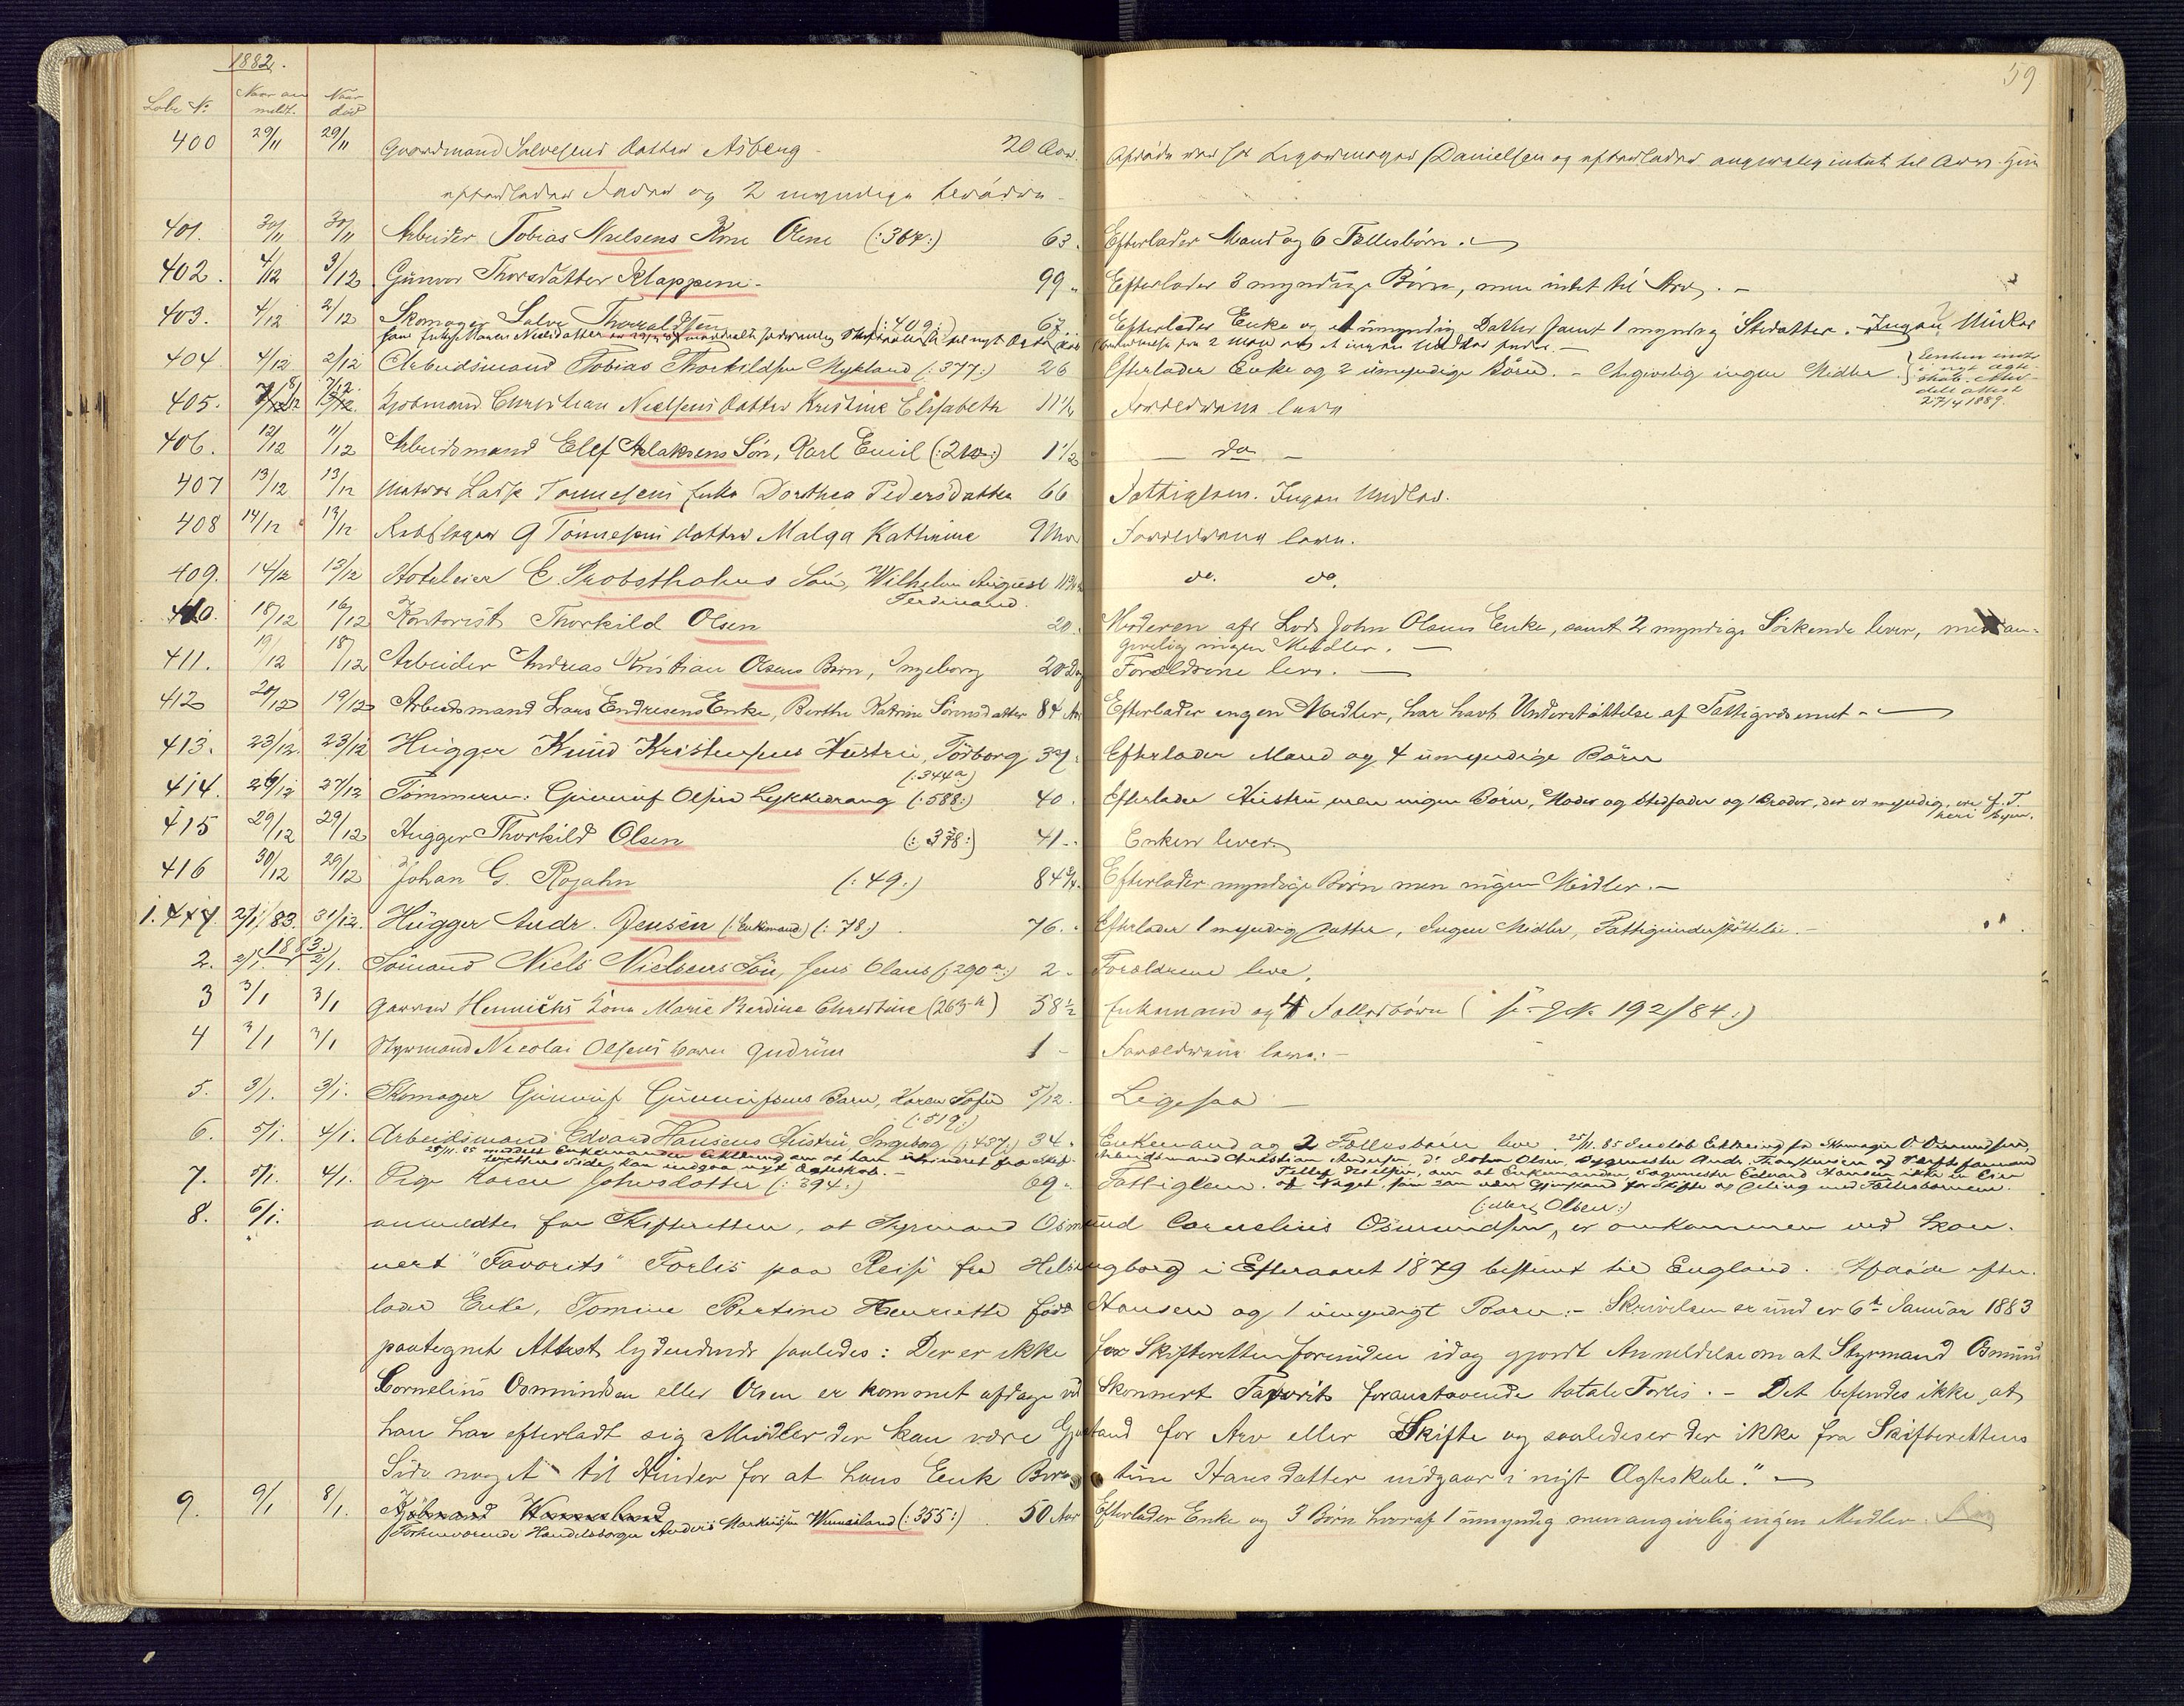 1882.
59
Løbe №
Naar an
meldt.
Naar
død
400 29/11 29/11 Gaardmand Salvesens datter Åsbeng 20 Aar. Afdøde var Daniellsen og efterlader angivelig intet til Arv. Hun
efterlader Fader og 2 myndige
401. 30/11 30/11 Arbeider Tobias Nielsens Kone Olene 63. Efterlader Mand og 6 Fællesbörn.
402. 4/12 3/12 Gunvor Thorsdatter Klappene. 99 " Efterlader 3 myndige Börn, men intet til Arv. -
403. 4/12 2/12 Skomager Salve Thoraldsen (:409:) 67. Efterlader Enke og et umyndig Datter samt 1 myndig Steddatter. Ingen Midler
404. 4/12 2/12 Arbeidsmand Tobias Thorkildsen Mykland (:377:) 26 Efterlader Enke og 2 umyndige Börn. - Angivelig ingen Midler
27/4 1889.
405. 8/12 7/12 Christian Nielsens datter Kristine Elisabeth 11 1/2 Forældrene leve
406. 12/12 11/12 Arbeidsmand Elef Aslaksens Sön, Karl Emil (:210:) 1 1/2 - do -
407 13/12 13/12 Matros Lars Tönnesens Enke Dorthea Pedersdatter 66 Fattiglem. Ingen Midler.
408 14/12 13/12 Rebslager G Tönnesens datter Malga Kathrine 9 Forældrene leve.
409. 14/12 13/12 Hoteleier E. Probstholms Sön, Wilhelm August
Ferdinand. do. do.
410. 18/12 16/12 Kontorist Thorkild Olsen 20. Moderen afd Lods John Olsens Enke, samt 2 myndige Söskende lever, men an-
givelig ingen Midler. -
411. 19/12 18/12 Arbeider Andreas Kristian Olsens Barn, Ingeborg 20 Dg Forældrene leve. -
412 20/12 19/12 Arbeidsmand Lars Endresens Enke, Berthe Katrine Sörensdatter 84 Efterlader ingen Midler, har havt Understöttelse af Fattigvæsenet -
413. 23/12. 23/12 Hugger Knud Kristensens Hustru, Torborg 37. Efterlader Mand og 4 umyndige Börn
(:344a:)
414. 28/12 27/12 Tömmerm: Gunnuf Olsen Lykkedrang (:588:) 40. Efterlader Hustru, men ingen Börn, Moder og Stedfader og 1 Broder, der er myndig, ere f. T.
her i Byen.
415 29/12 29/12 Hugger Thorkild Olsen (:378:) 41 - Enken lever
416 30/12 29/12 Johan G. Rojahn (:49:) 84 3/4. Efterlader myndige Börn men ingen Midler. -
1. 417. 2/1/83. 31/12. Hugger Andr. Jensen (:Enkemand) (:78:) 76. Efterlader 1 myndig Datter, Ingen Midler, Fattigunderstöttelse. -
1883:
2. 2/1. 2/1. Sömand Niels Nielsens Sön, Jens Olaus (:290a:) 2. Forældrene leve.
3 3/1 3/1 Garver Hennichs Kone Marie Berdine Christine (263-a) 58 1/2 Enkemand og 4 Fællesbörn ( 192/84:)
4 3/1 3/1 Styrmand Nicolai Olsens barn Gudrun 1 - Forældrene leve. -
5. 3/1. 3/1. Skomager Gunnuf Gunnufsens Barn, Karen Sofie 5/12. Ligesaa -
(:519:)
6. 5/1. 4/1. Arbeidsmand Edvard Hansens Hustru Ingeborg (:437:) 34. Enkemand og 2 Fællesbörn leve 25/11.85 Indløb Erklæring fra Skomager O. Osmundsen,
25/11.85 meddelt Enkemanden Erklæring om at han uhindret fra Skif- Arbeidsmand Christian Andersen, do John Olsen,
terettens Side kan indgaa nyt Ægteskab. - om at Enkemanden, Sagmester Edvard Hansen ikke er Eier
7. 5/1. 4/1. Pige Karen Johnsdatter (:394:) 69. Fattiglem. af Noget, som kan være Gjenstand for Skifte og Deling med Fællesbörnene.
(:eller Olsen:)
8. 6/1. anmeldtes for Skifteretten, at Styrmand Osmund Cornelius Osmundsen, er omkommen ved Skon-
nert "Favorits" Forlis paa Reise fra Helsingborg i Efteraaret 1879 bestemt til England. Afdøde efter-
lader Enke, Tomine Bertine Henriette født Hansen og 1 umyndigt Barn. - Skrivelsen er und er 6te Januar 1883
paategnet Attest lydendende saaledes: Der er ikke for Skifteretten forinden idag gjordt Anmeldelse om at Styrmand Osmund
Cornelius Osmundsen eller Olsen er kommet afdage ved Skonnert Favorits foranstaaende totale Forlis. - Det befindes ikke at
han har efterladt sig Midler der kan være Gjenstand for Arv eller Skifte og saaledes er der ikke fra Skifterettens
Side noget til Hinder for at hans Enke Bertine Hansdatter indgaar i nyt Ægteskab." -
9. 9/1 8/1. Kjöbmand Wennesland
Forhenværende Handelsborger Anders Markussen Wennesland (:355:) 50 Aar Efterlader Enke og 3 Börn hvoraf 1 umyndig men angivelig ingen Midler.